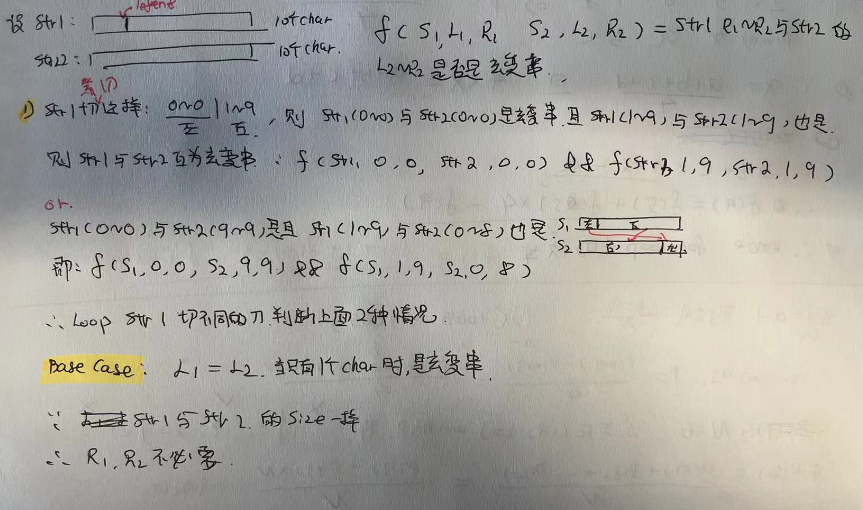 设 str1: 10个char
str2: 10个char.
f ( S1, L1, R1 S2, L2, R2 ) = str1 R1~R2 与 str2 的
L2~R2 是否是玄变串.
1) str1 切这样: 0~0 | 1~9, 则 str1(0~0) 与 str2(0~0) 是玄变串 且 str1(1~9) 与 str2(1~9) 也是.
左 右
则 str1 与 str2 互为玄变串 : f(str1, 0, 0, str2, 0, 0) && f(str1, 1, 9, str2, 1, 9)
or.
str1(0~0) 与 str2(9~9) 是且 str1(1~9) 与 str2(0~8) 也是.
S1 左 右
S2 右
即: f(S1, 0, 0, S2, 9, 9) && f(S1, 1, 9, S2, 0, 8)
∴ Loop str1 切不同的刀 判断上面2种情况.
Base Case: L1 = L2. 当只有1个char时, 是玄变串.
∵ str1 与 str2 的 size 一样
∴ R1, R2 不必要.